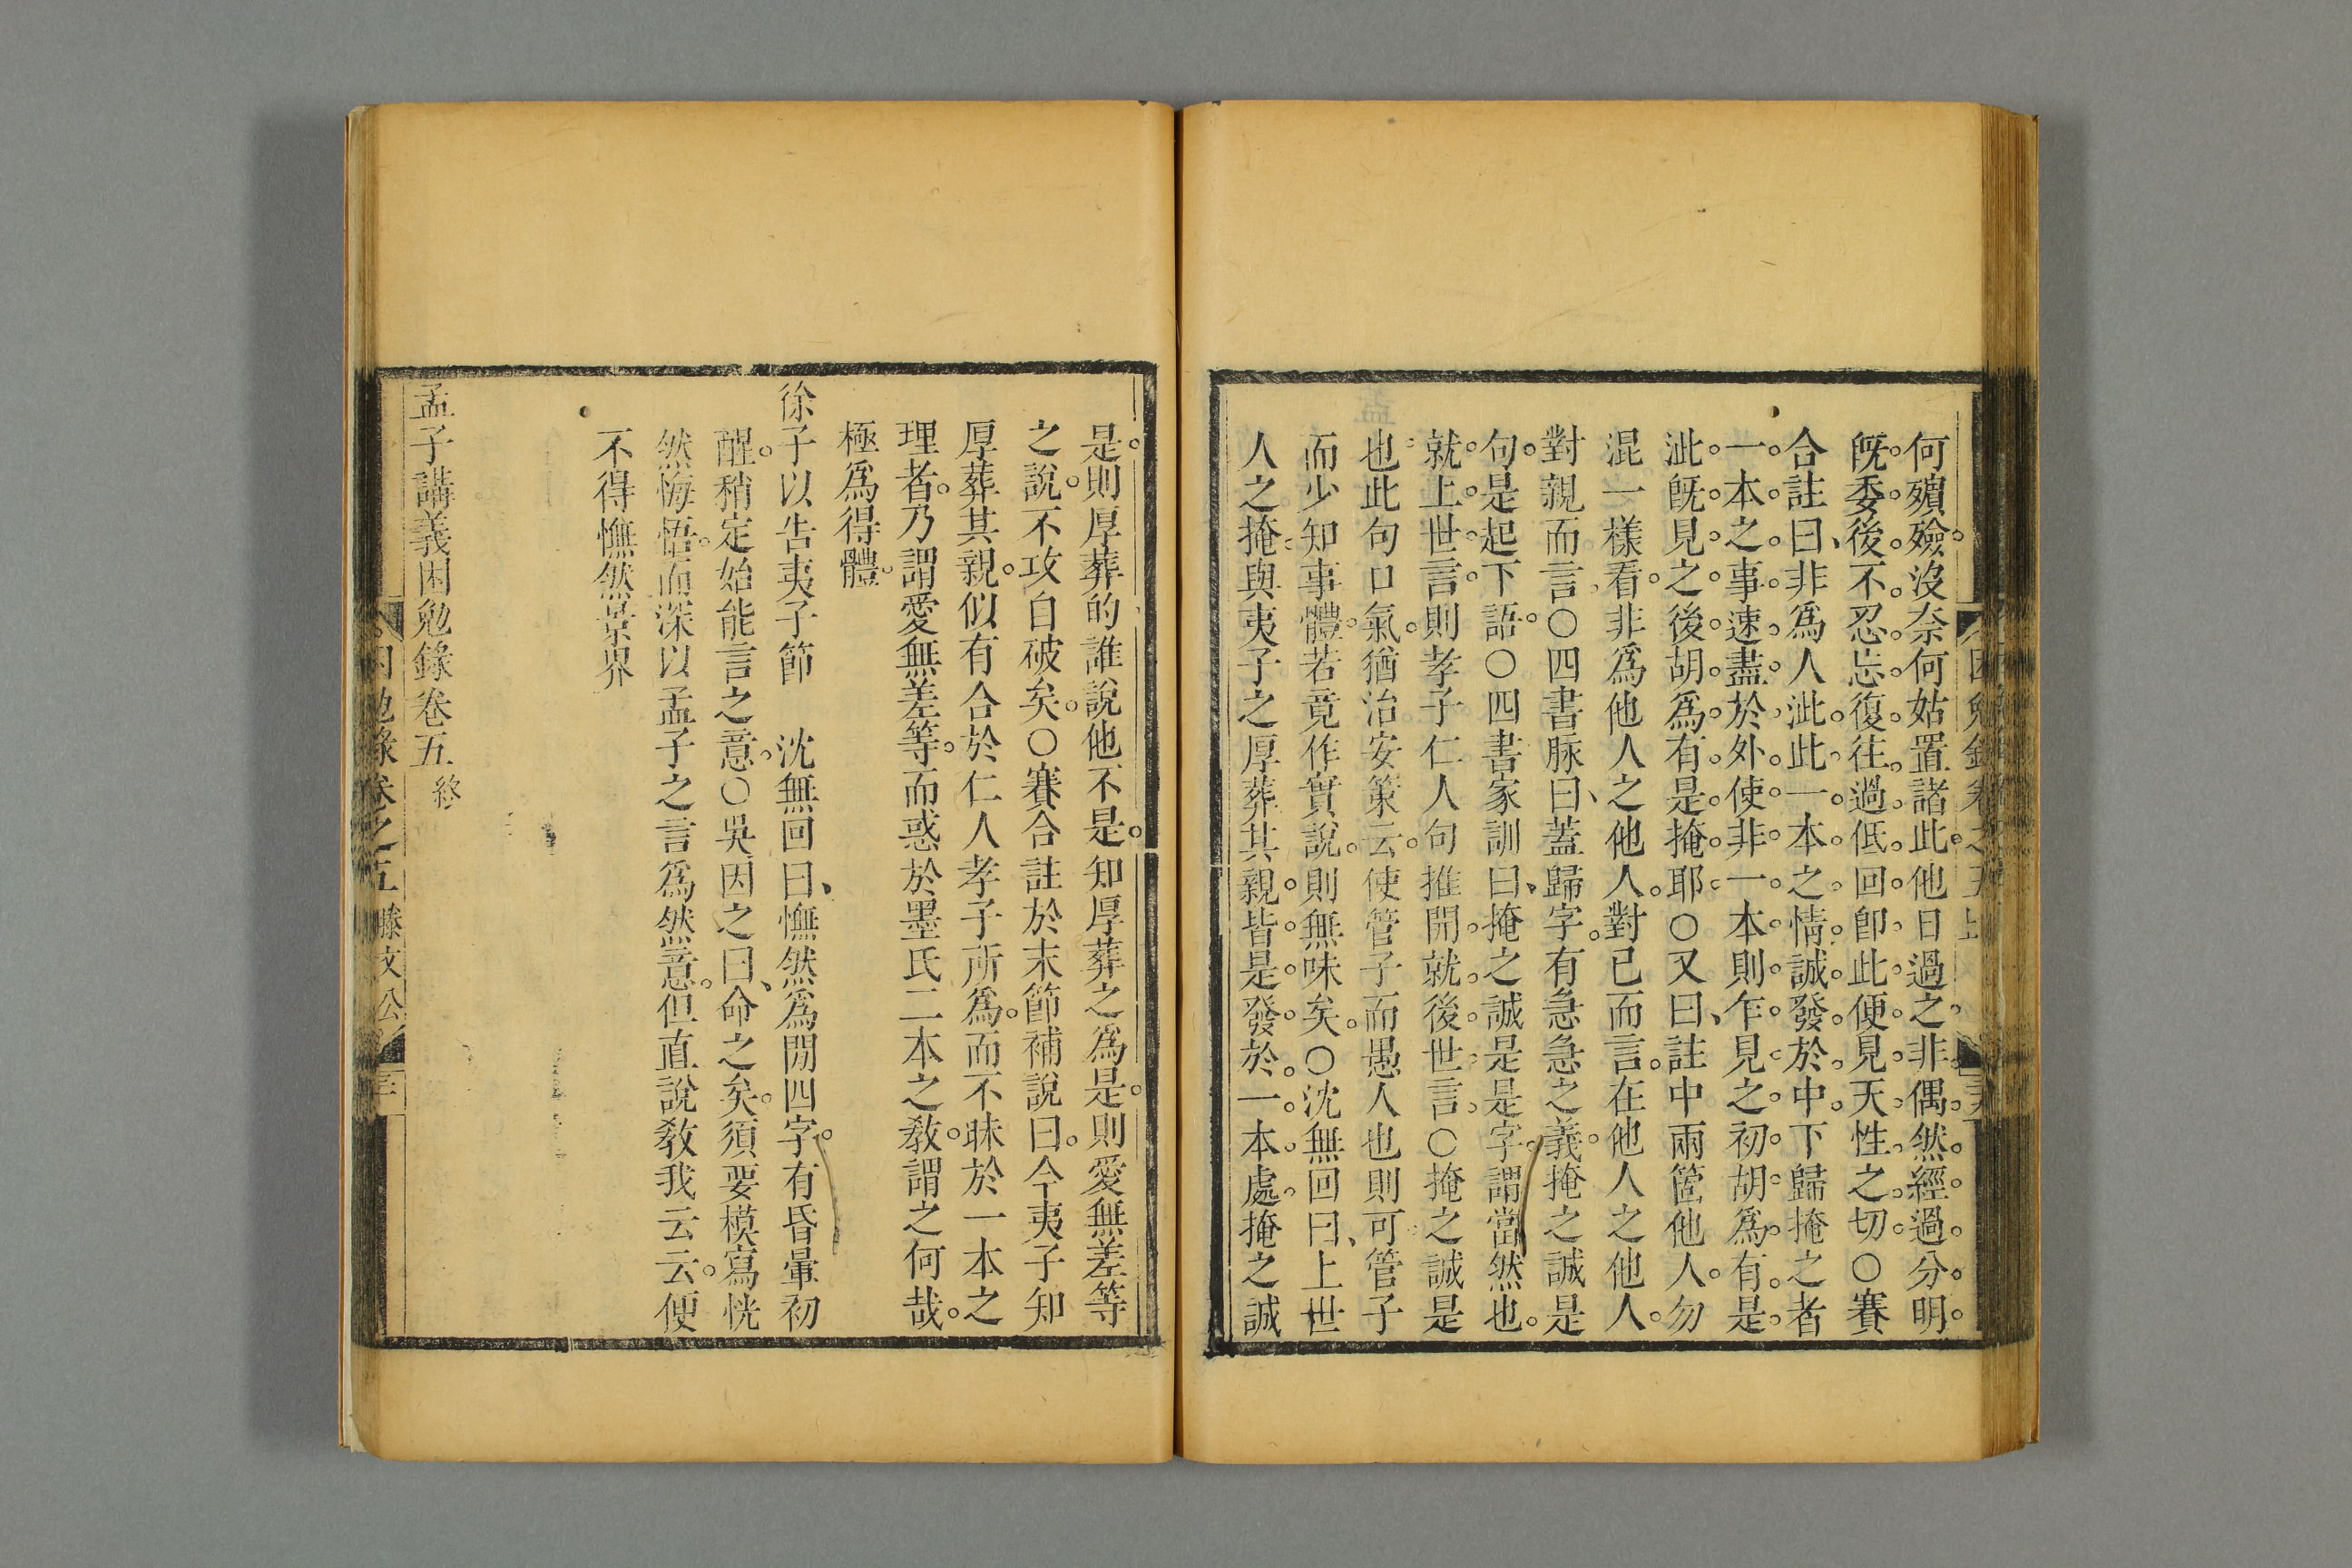 何殯殮沒奈何姑置諸此他日過之非偶然經過分明
既委後不忍忘復往過低回卽此便見天性之切○賽
合註曰非爲人泚此一本之情誠發於中下歸掩之者
一本之事速盡於外使非一本則乍見之初胡爲有是
泚旣見之後胡爲有是掩耶○又曰註中兩箇他人勿
混一樣看非爲他人之他人對已而言在他人之他人
對親而言○四書脉曰蓋歸字有急急之義掩之誠是
句是起下語○四書家訓曰掩之誠是是字謂當然也
就上世言則孝子仁人句推開就後世言○掩之誠是
也此句口氣猶治安策云使管子而愚人也則可管子
而少知事體若竟作實說則無味矣○沈無回曰上世
人之掩與夷子之厚葬其親皆是發於一本處掩之誠
是則厚葬的誰說他不是知厚葬之爲是則愛無差等
之說不攻自破矣○賽合註於末節補說曰今夷子知
厚葬其親似有合於仁人孝子所爲而不昧於一本之
理者乃謂愛無差等而惑於墨氏二本之教謂之何哉
極爲得體
徐子以告夷子節 沈無回曰憮然爲閒四字有昏暈初
醒稍定始能言之意○吳因之曰命之矣須要模寫恍
然悔悟而深以孟子之言爲然意但直說敎我云云便
不得憮然景界
孟子講義困勉錄卷五 終
困勉錄卷之五 滕文公